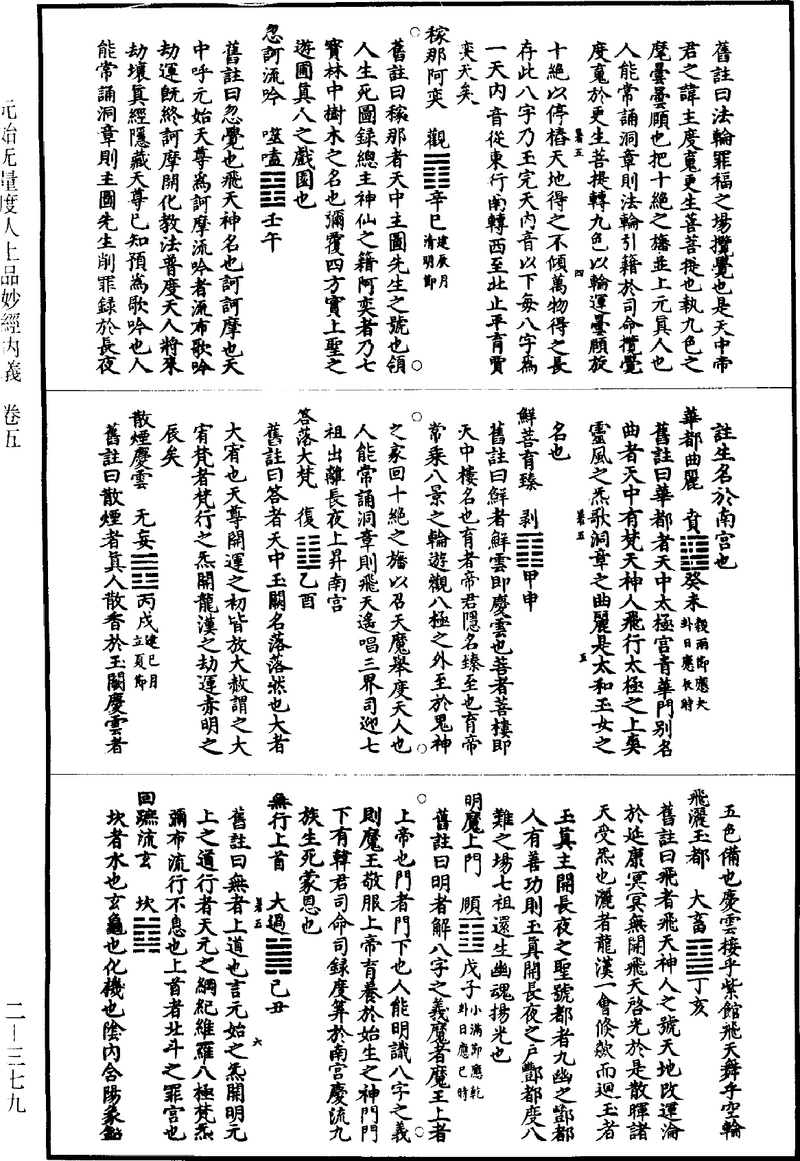 舊註曰法輪罪福之場攬覺也是天中帝
君之諱主度䰟更生菩菩提也執九色之
麾曇曇願也把十絕之旛並上元真人也
人能常誦洞章則法輪引籍於司命攬覺
度䰟於更生菩提轉九色以輪運曇願旋
十絕以停樁天地得之不傾萬物得之長
存此八字乃玉完天內音以下每八字為
一天內音從東行南轉西至北止平育賈
奕天矣
稼那阿奕　觀䷓辛巳建辰月清明節
舊註曰稼那者天中主圖先生之號也領
人生死圖錄總主神仙之籍阿奕者乃七
寶林中樹木之名也彌覆四方實上聖之
遊圃真人之戲園也
忽訶流吟　噬嗑䷔壬午
舊註曰忽覺也飛天神名也訶訶摩也天
中呼元始天尊為訶摩流吟者流布歌吟
劫運既終訶摩開化教法普度天人將來
劫壞真經隱藏天尊已知預為歌吟也人
能常誦洞章則主圖先生削罪錄於長夜
註生名於南宮也
華都曲麗　賁䷕癸未穀雨節應大卦日應長時
舊註曰華都者天中太極宮青華門別名
曲者天中有梵天神人飛行太極之上奏
靈風之炁歌洞章之曲麗是太和玉女之
名也
鮮菩育臻　剥䷖甲申
舊註曰鮮者鮮雲即慶雲也菩者菩棲即
天中樓名也育者帝君隱名臻至也育帝
常乘八景之輪遊觀八極之外至於䰟神
之家回十絕之旛以召天魔舉度天人也
人能常誦洞章則飛天遙唱三界司迎七
祖出離長夜上昇南宮
答落大梵　復䷗乙酉
舊註曰答者天中玉關名落落然也大者
大宥也天尊開運之初皆放大赦謂之大
宥梵者梵行之炁開龍漢之劫運赤明之
辰矣
散煙慶雲　无妄䷘丙戌建巳月立夏節
舊註曰散煙者真人散香於玉闕慶雲者
五色備也慶雲接乎紫館飛天舞乎空輪
飛灑玉都　大畜䷙丁亥
舊註曰飛者飛天神人之號天地改運淪
於延康冥冥無開飛天啓光於是散暉諸
天受炁也灑者龍漢一會倏歘而迴玉者
玉真主開長夜之聖號都者九幽之酆都
人有善功則玉真開長夜之戶酆都度八
難之場七祖還生幽魂揚光也
明魔上門　頤䷚戊子小滿節應乾卦日應巳時
舊註曰明者解八字之義魔者魔王上者
上帝也門者門下也人能明識八字之義
則魔王敬服上帝育養於始生之神門門
下有韓君司命司錄度筭於南宮慶流九
族生死蒙恩也
無行上首　大過䷛己丑
舊註曰無者上道也言元始之炁開明元
上之道行者天元之綱紀維羅八極梵炁
彌布流行不息也上首者北斗之罪宮也
回蹠流玄　坎䷜
坎者水也玄龜也化機也陰內含陽象
元始无量度人上品妙經內義　卷五
二—三七九